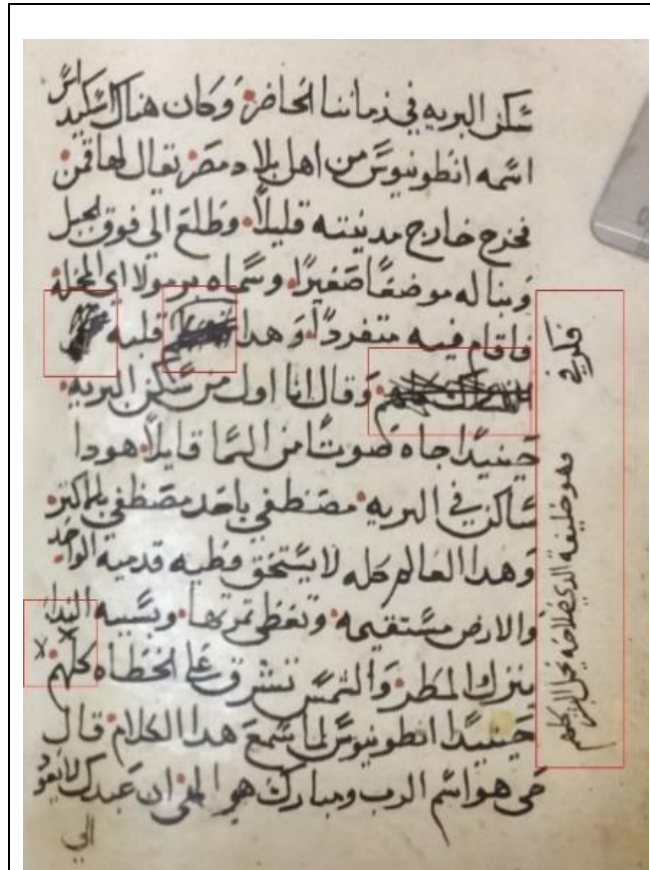 سكن البريه في زماننا الحاضر وكان هناك اسكيد اس
اسمه انطونيوس من اهل بلاد مصر تقال لها قمن
فخرج خارج مدينته قليلاً وطلع الي فوق الجبل
وبنا له موضعًا صغيرًا وسماه برمولا اى المخلة
فاقام فيه متفردًا وهدا قلبه
وقال انا اول من سكن البريه
حينيدًا جاه صوتًا من السما قايلاً هودا
ساكن في البريه مصطفي باحد مصطفي
وهدا العالم كله لا يستحق وطيه قدميه الواحد
والارض مستقيمه وتعطي تمرتها وبسببه الندا
ينزل المطر والشمس تشرق على الخطاه كلهم
حينيدًا انطونيوس لما سمع هدا الكلام قال
حى هو اسم الرب ومبارك هو ان عبدك لا يعود
الي
فكر في
وهو خليفة الدي صلاحه كلهم